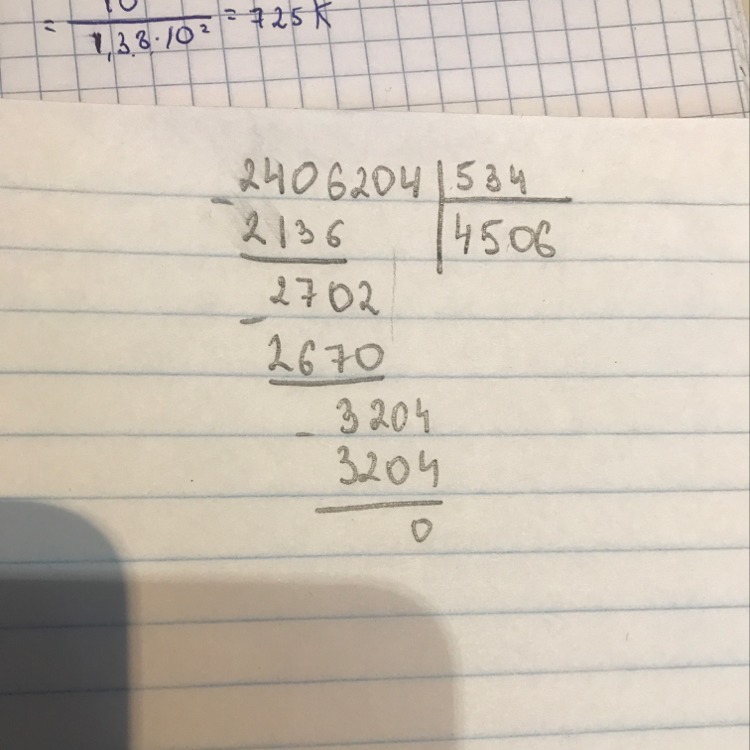 10
= ――― = 725 K
1,38·10²
2406204 | 534
- 2136 | 4506
2702
- 2670
3204
- 3204
0